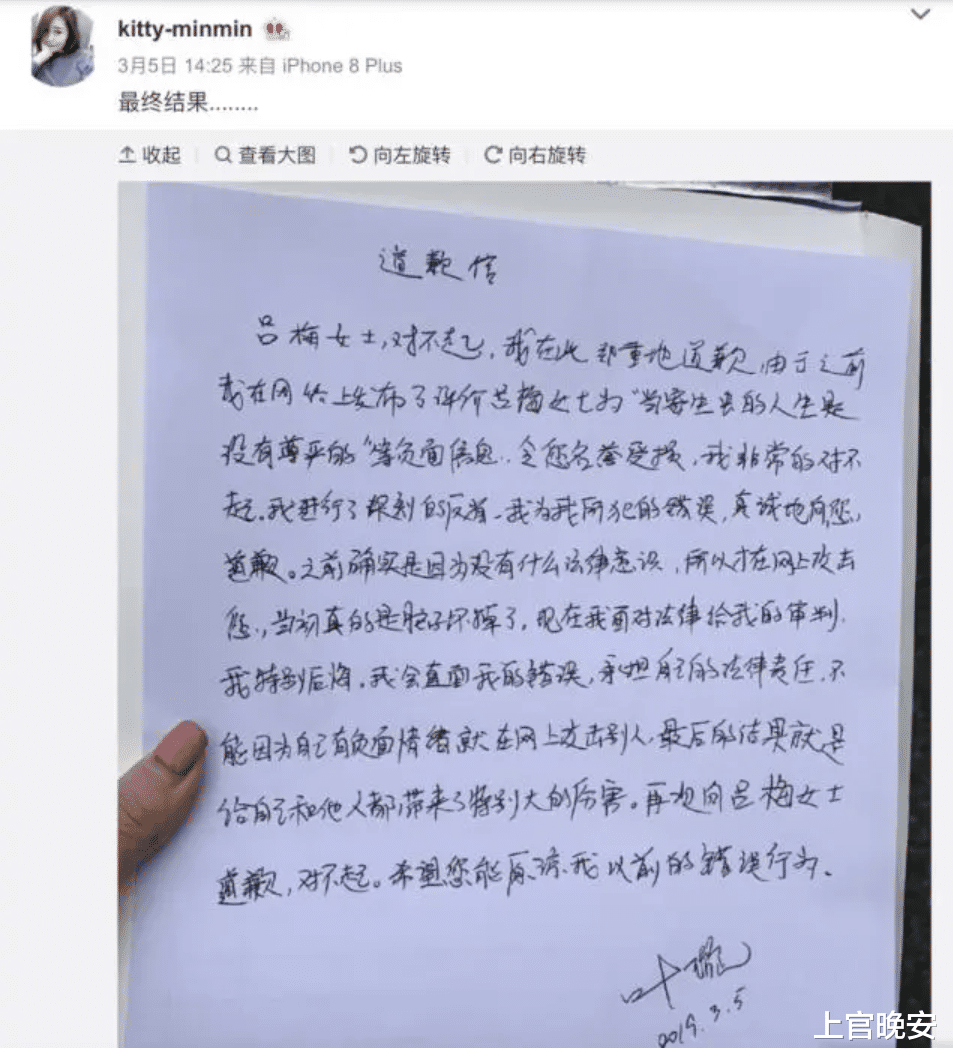 kitty-minmin
3月5日 14:25 来自 iPhone 8 Plus
最终结果........
收起 查看大图 向左旋转 向右旋转
道歉信
吕梅女士,对不起,我在此郑重地道歉,由于之前
我在网络上发布了评价吕梅女士为“当寄生虫的人生是
没有尊严的”等负面信息,令您名誉受损,我非常的对不
起,我进行了深刻的反省,我为我所犯的错误,真诚地向您,
道歉。之前确实是因为没有什么法律意识,所以才在网上攻击
您,当初真的是脑子坏掉了,现在我面对法律给我的审判,
我特别后悔,我会直面我的错误,承担自己的法律责任,不
能因为自己有负面情绪就在网上攻击别人,最后的结果就是
给自己和他人都带来了特别大的厉害。再次向吕梅女士
道歉,对不起。希望您能原谅我以前的错误行为.
叶
2019.3.5
上官晚安